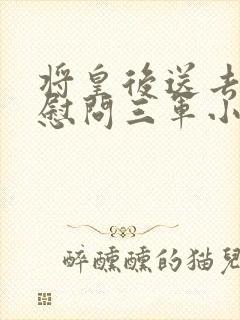 将皇後送去
慰問三軍小
醉醺醺的猫兒